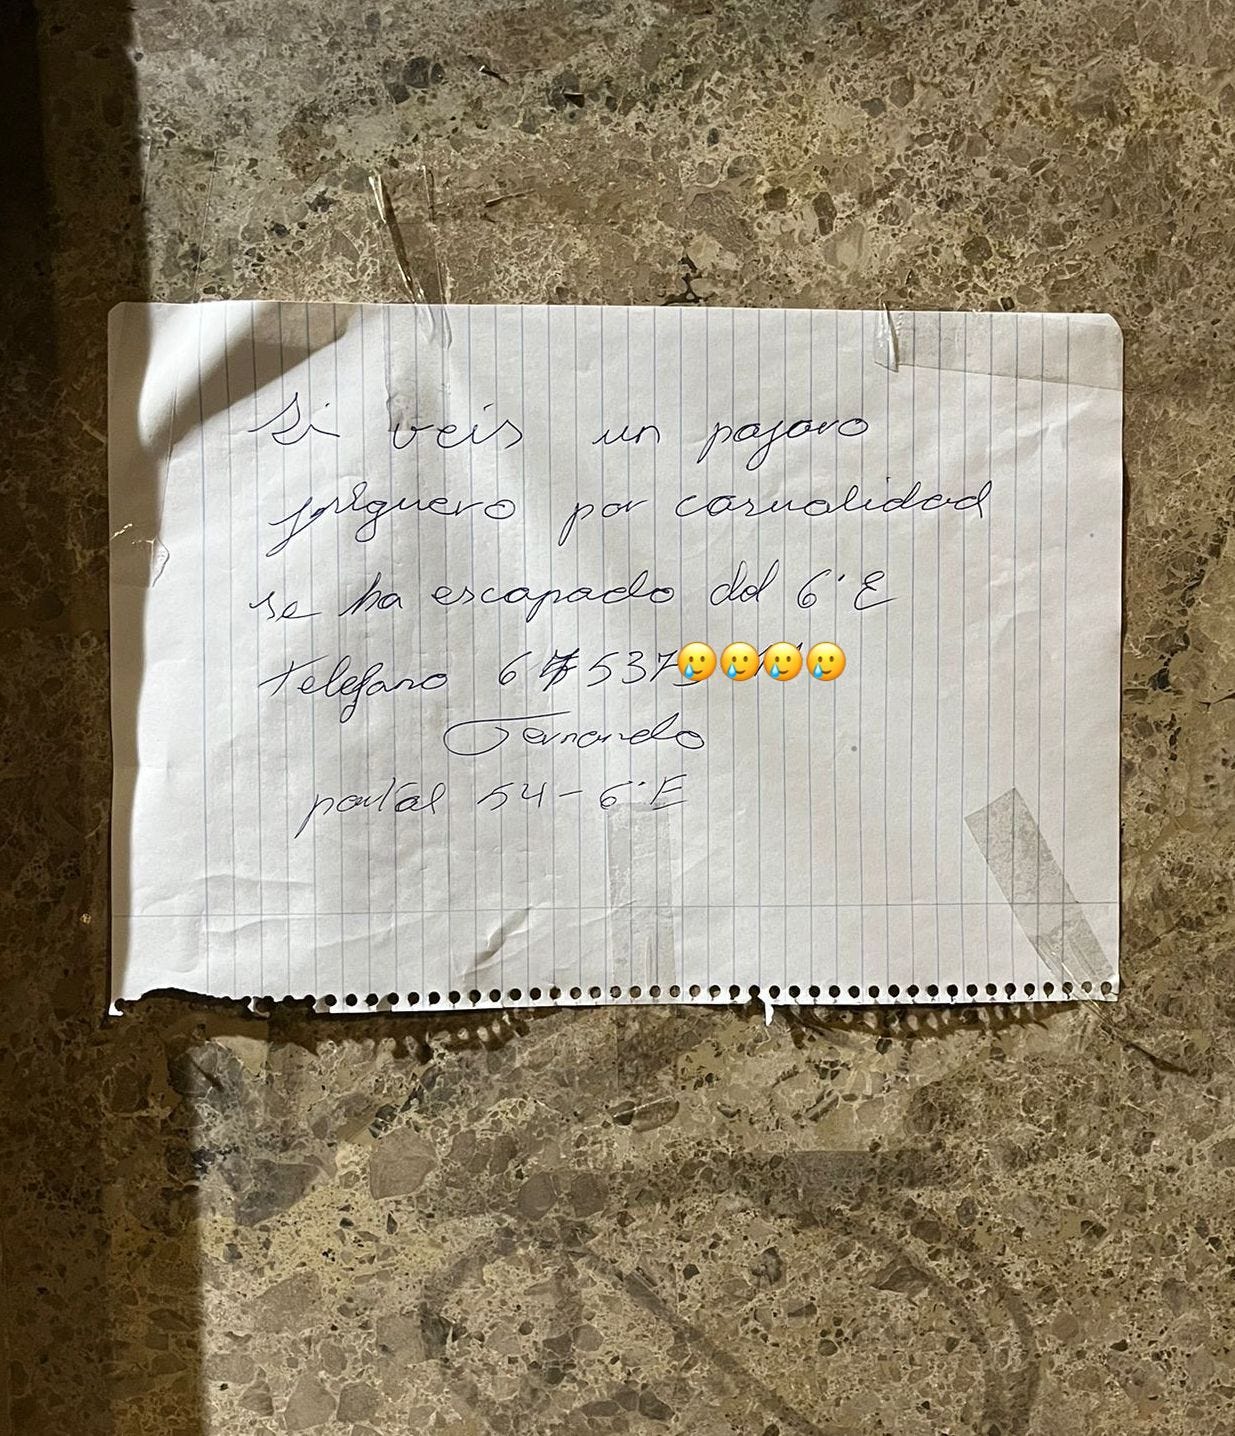 Si veis un pajaro
jilguero por casualidad
se ha escapado del 6º E
telefono 675373🥲🥲🥲🥲
Fernando
portal 54 - 6º E